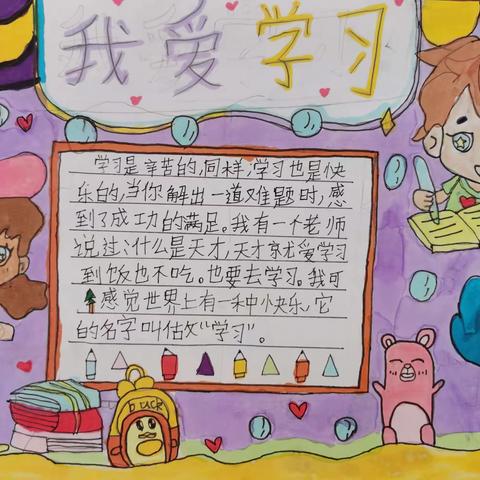 我爱学习
学习是辛苦的,同样,学习也是快
乐的,当你解出一道难题时,感
到了成功的满足。我有一个老师
说过:什么是天才,天才京尤爱学习
到饭也不吃。也要去学习。我可
感觉世界上有一种小快乐,它
的名字叫估攵“学习”。
buck